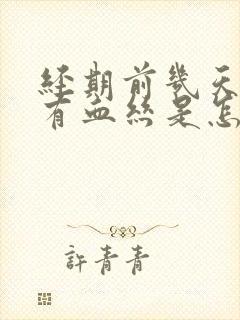 經期前幾天
有血絲是怎
許青青